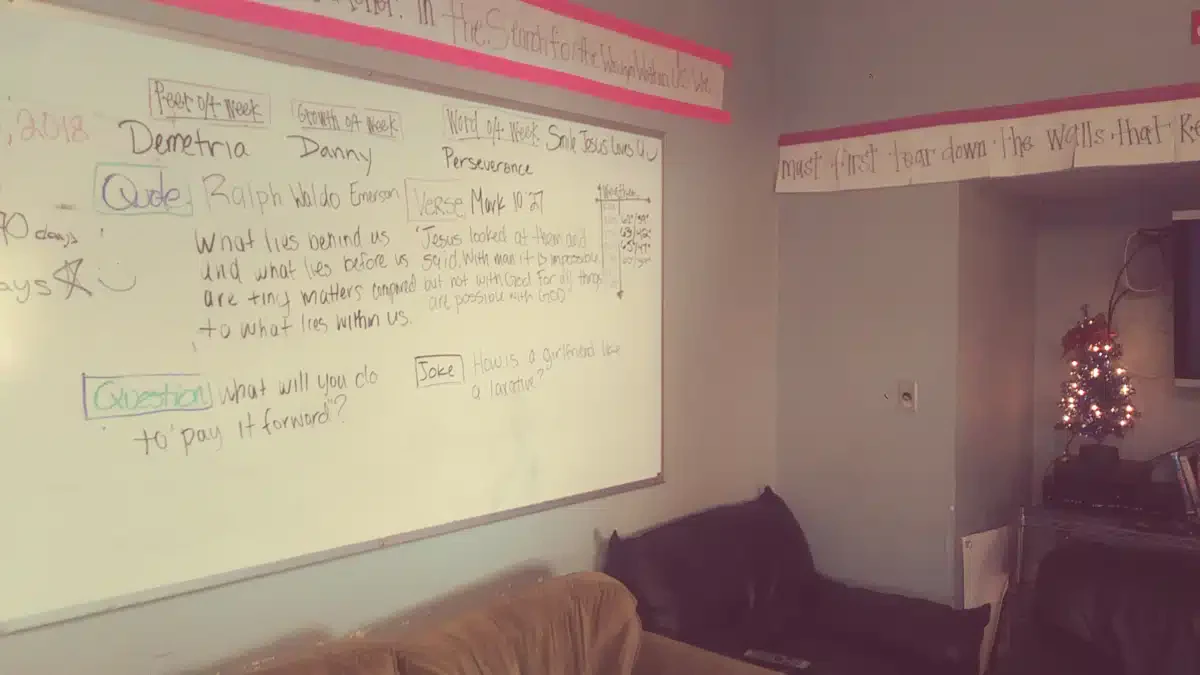 in the Search for the Within Us We
must first tear down the walls that
, 2018
Peer of + Week
Demetria
Growth of + Week
Danny
Word of + Week
Perseverance
Smile Jesus Loves U
Quote Ralph Waldo Emerson
What lies behind us
and what lies before us
are tiny matters compared
to what lies within us.
Verse Mark 10:27
"Jesus looked at them and
said, With man it is impossible
but not with God. For all things
are possible with GOD"
90 days
ays
Question what will you do
to "pay it forward"?
Joke How is a girlfriend like
a laxative?